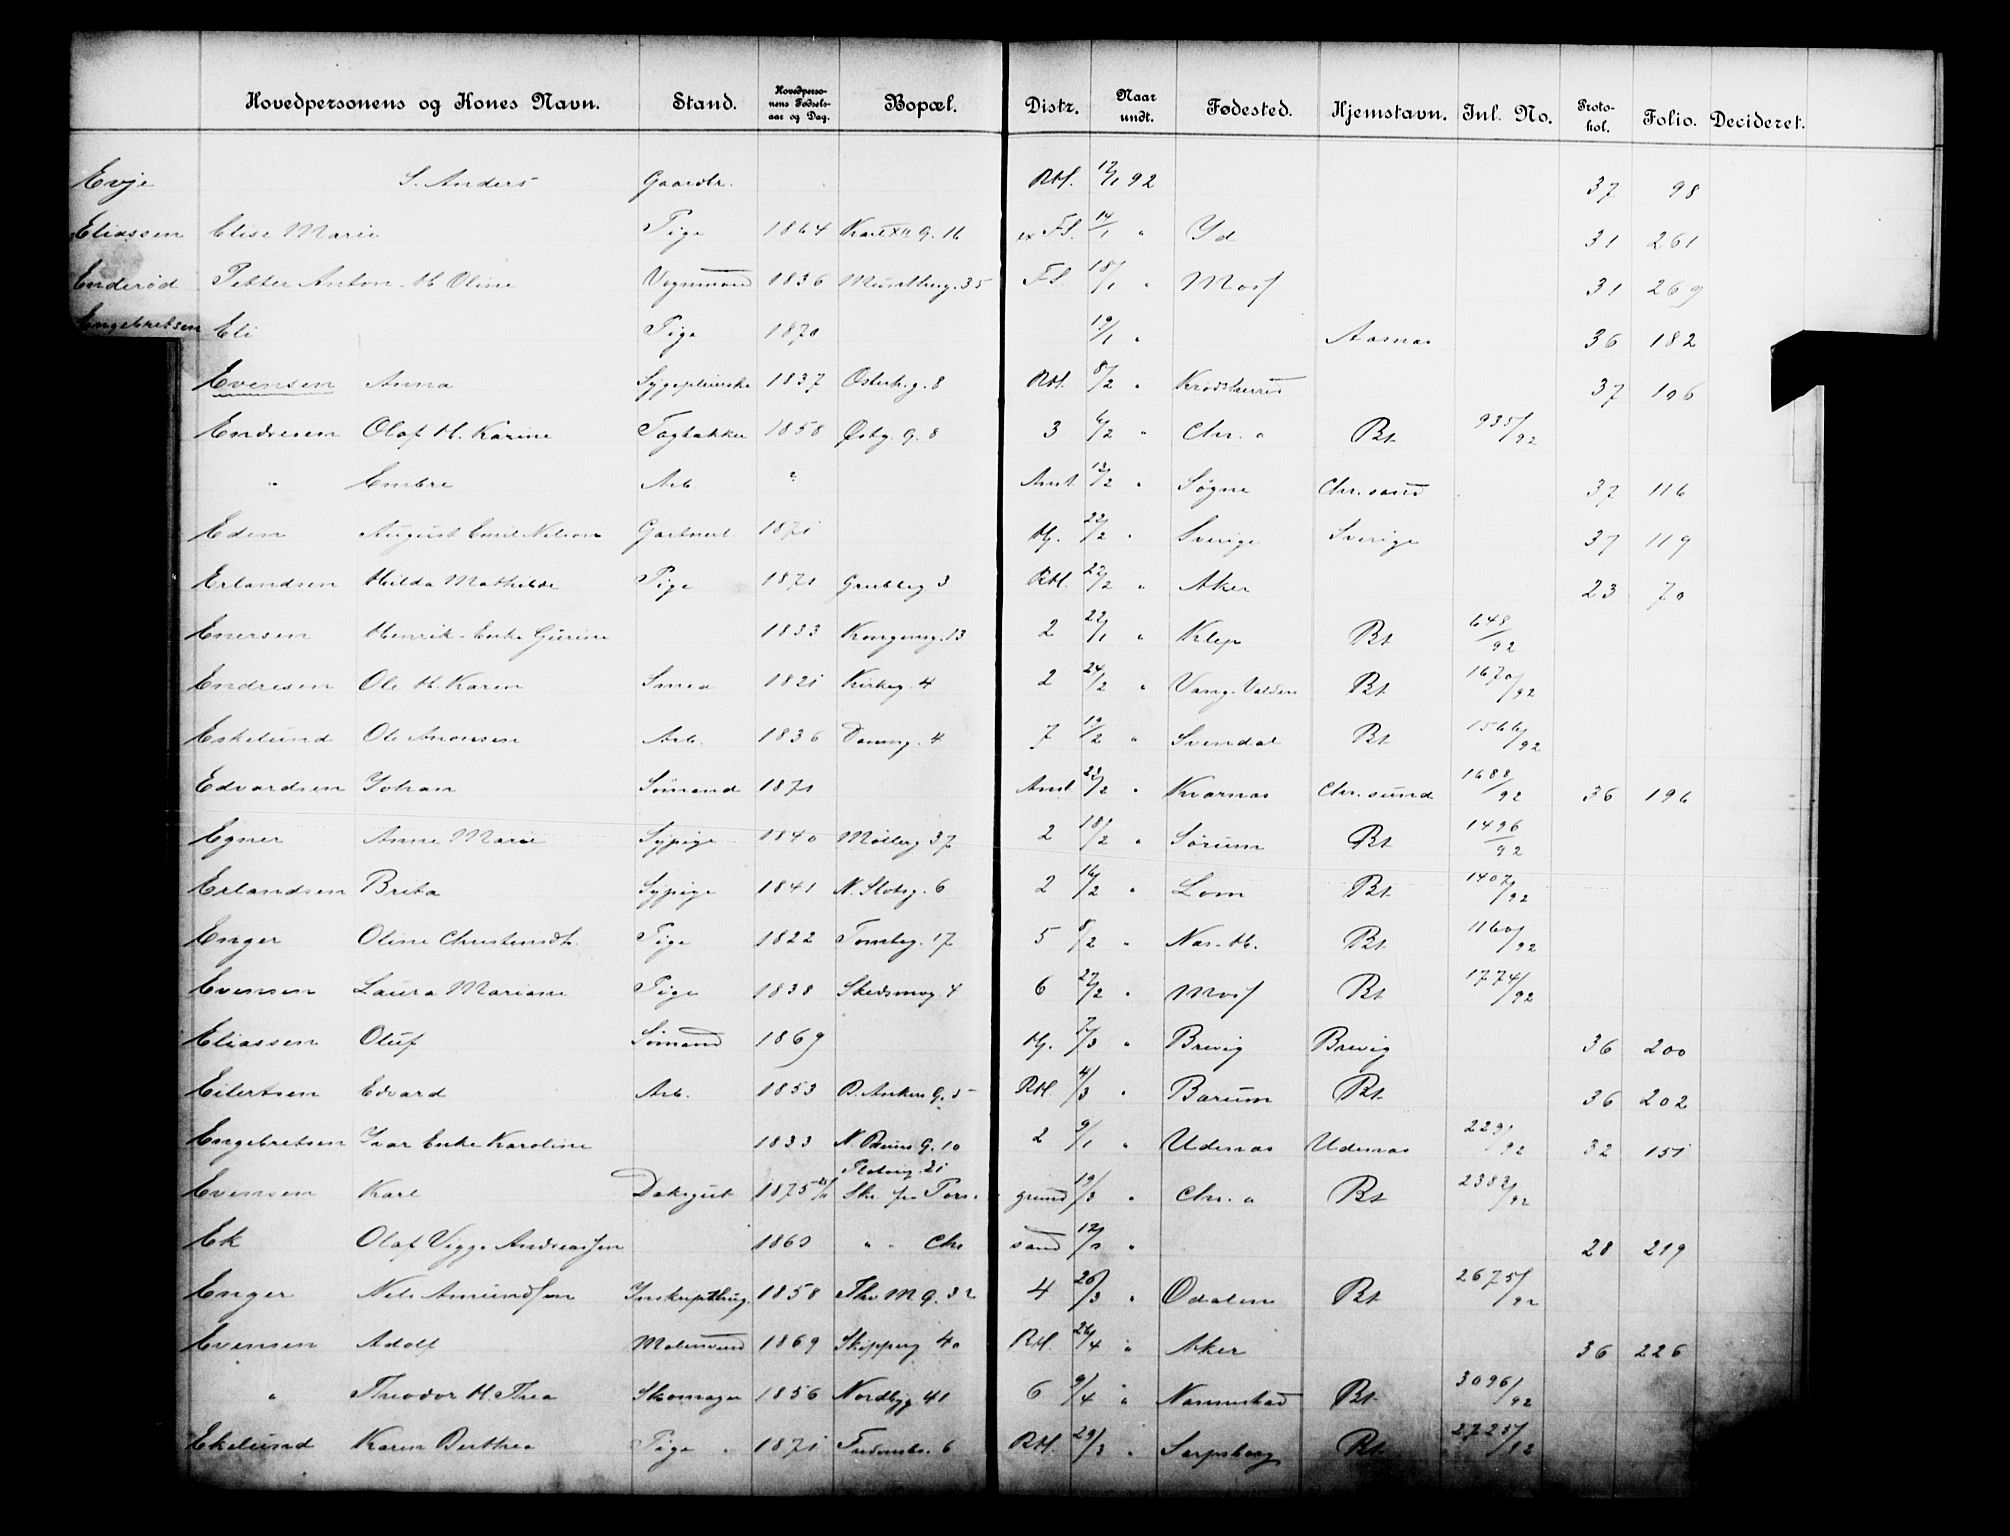 Hovedpersonens og Kones Navn. Stand. Hovedpersonens Fødselsaar og Dag. Bopæl. Distr. Naar undt. Fødested. Hjemstavn. Inl. No. Protokol. Folio. Decideret.
Evje S. Anders Gaardbr. RM. 12/1 92 37 98
Eliassen Elise Marie Pige 1864 Karl XII G. 16 Fs. 14/1 " Id 31 261
Enderød Petter Anton H Oline Vognmand 1836 35 Fs. 18/1 " Moss 31 269
Engebretsen Eli Pige 1870 19/1 " Aasnæs 36 182
Evensen Anna Sygepleierske 1837 Osterh.g. 8 RM. 8/2 " Krødsherred 37 106
Endresen Olaf H. Karine Tagtækker 1858 Østg. G. 8 3 6/2 " Chr.a Bt 935/92
" Embre Arb. " Amt 12/2 " Søgne Chr.sand 37 116
Eden August Emil Nilson Gartnerl. 1871 Hj. 22/2 " Sverige Sverige 37 119
Erlandsen Hilda Mathilde Pige 1871 Grubbeg 3 RM. 22/2 " Aker 23 70
Enersen Henrik Enke Gurine 1833 Kongensg. 13 2 22/1 " Klep Bt 648/92
Endresen Ole H. Karen Smed 1821 Kirkeg. 4 2 24/2 " Vang. Valders Bt 1670/92
Eskelund Ole Anonsen Arb. 1836 4 7 19/2 " Svendal Bt 1566/92
Edvardsen Johan Sømand 1871 Amt 22/2 " Kvarnæs Chr.sund 1688/92 36 196
Egner Anne Marie Sypige 1840 Møllerg 37 2 18/2 " Sørum Bt 1496/92
Erlandsen Brita Sypige 1841 N. Slotsg. 6 2 16/2 " Lom Bt 1407/92
Enger Oline Christensdt. Pige 1822 Tomteg. 17 5 8/2 " Næs. H. Bt 1160/92
Evensen Laura Mariane Pige 1838 Skedsmog. 4 6 27/2 " Moss Bt 1774/92
Eliassen Oluf Sømand 1869 Hj. 7/3 " Brevig Brevig 36 200
Eilertsen Edvard Arb. 1853 B. Ankers G. 5 RM 4/3 " Bærum Bt 36 202
Engebretsen Ivar Enke Karoline 1833 G. 10 2 9/1 " Udenæs Udenæs 229/92 32 151
21
Evensen Karl Dæksgut 1875 Skr. fra Porsgrund 19/3 " Chr.a Bt 2383/92
Ek Olaf Viggo Andreassen 1860 " " Chrsand 12/3 " 28 219
Enger Nels Amundsen 1858 Thv. M G. 32 4 26/3 " Odalen Bt 2675/92
Evensen Adolf Malersvend 1869 Skipperg 40 RM. 26/4 " Aker 36 226
" Theodor H. Thea Skomager 1856 Nordbyg 41 6 9/4 " Nannestad Bt 3096/92
Ekelund Karen Berthea Pige 1871 6 RM. 29/3 " Sarpsborg Bt 2725/92